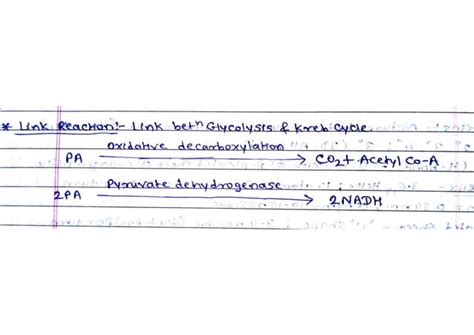 * Link Reaction:- Link betn Glycolysis & Kreb Cycle.
oxidative decarboxylation
PA ⟶ CO2 + Acetyl Co-A
Pyruvate dehydrogenase
2PA ⟶ 2NADH